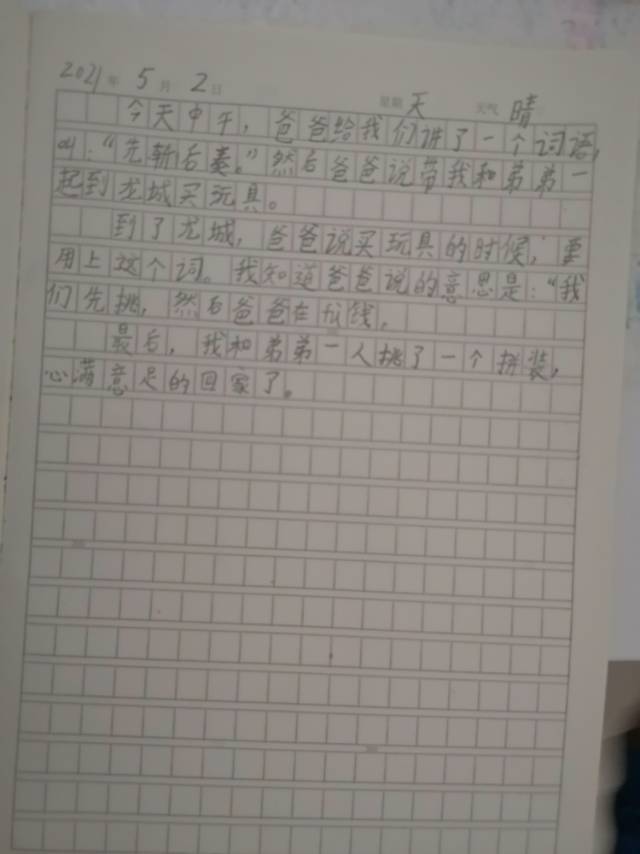 2021年 5月 2日 星期天 天气晴
今天中午，爸爸给我们讲了一个词语，
叫：“先斩后奏。”然后爸爸说带我和弟弟一
起到龙城买玩具。
到了龙城，爸爸说买玩具的时候，要
用上这个词。我知道爸爸说的意思是：“我
们先挑，然后爸爸在付钱，
最后，我和弟弟一人挑了一个拼装，
心满意足的回家了。